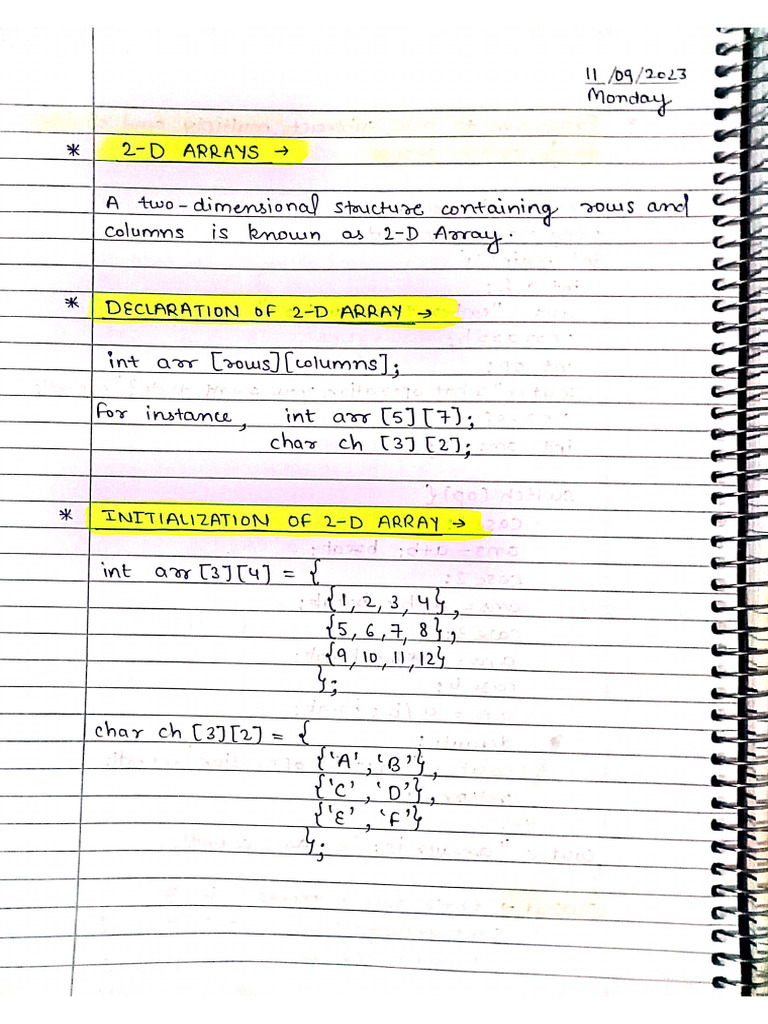 11/09/2023
Monday
* 2-D ARRAYS →
A two-dimensional structure containing rows and
columns is known as 2-D Array.
* DECLARATION OF 2-D ARRAY →
int arr [rows][columns];
For instance, int arr [5][7];
char ch [3][2];
* INITIALIZATION OF 2-D ARRAY →
int arr [3][4] = {
{1, 2, 3, 4},
{5, 6, 7, 8},
{9, 10, 11, 12}
};
char ch [3][2] = {
{'A', 'B'},
{'C', 'D'},
{'E', 'F'}
};